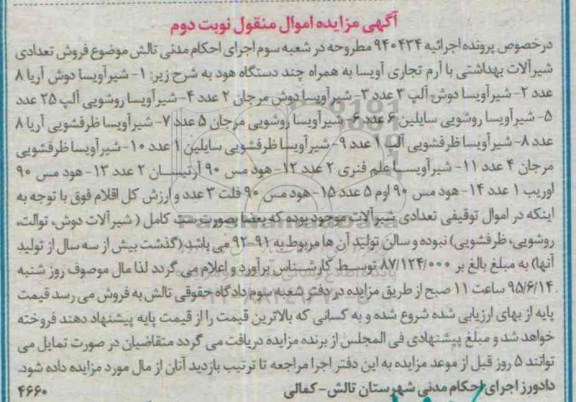 آگهی مزایده اموال منقول نوبت دوم
درخصوص پرونده اجرائیه ۹۴۰۴۳۴ مطروحه در شعبه سوم اجرای احکام مدنی تالش موضوع فروش تعدادی
شیرآلات بهداشتی با آرم تجاری آویسا به همراه چند دستگاه هود به شرح زیر: ۱- شیرآویسا دوش آریا ۸
عدد ۲- شیرآویسا دوش آلپ ۳ عدد ۳- شیرآویسا دوش مرجان ۲ عدد ۴- شیرآویسا روشویی آلپ ۲۵ عدد
۵- شیرآویسا روشویی سایلین ۶ عدد ۶- شیرآویسا روشویی مرجان ۵ عدد ۷- شیرآویسا ظرفشویی آریا ۸
عدد ۸- شیرآویسا ظرفشویی آلپ ۱ عدد ۹- شیرآویسا ظرفشویی سایلین ۱ عدد ۱۰- شیرآویسا ظرفشویی
مرجان ۴ عدد ۱۱- شیرآویسا علم فنری ۲ عدد ۱۲- هود مس ۹۰ آرتیسان ۲ عدد ۱۳- هود مس ۹۰
اوریب ۱ عدد ۱۴- هود مس ۹۰ اوم ۵ عدد ۱۵- هود مس ۹۰ فلت ۳ عدد و ارزش کل اقلام فوق با توجه به
اینکه در اموال توقیفی تعدادی شیرآلات موجود بوده که بعضا بصورت ست کامل (شیرآلات دوش، توالت،
روشویی، ظرفشویی) نبوده و سالن تولید آن ها مربوط به ۹۱-۹۲ می باشد (گذشت بیش از سه سال از تولید
آنها) به مبلغ بالغ بر ۸۷/۱۲۴/۰۰۰ توسط کارشناس برآورد و اعلام می گردد لذا مال موصوف روز شنبه
۹۵/۶/۱۴ ساعت ۱۱ صبح از طریق مزایده در دفتر شعبه سوم دادگاه حقوقی تالش به فروش می رسد قیمت
پایه از بهای ارزیابی شده شروع شده و به کسانی که بالاترین قیمت را از قیمت پایه پیشنهاد دهند فروخته
خواهد شد و مبلغ پیشنهادی فی المجلس از برنده مزایده دریافت می گردد متقاضیان در صورت تمایل می
توانند ۵ روز قبل از موعد مزایده به این دفتر اجرا مراجعه تا ترتیب بازدید آنان از مال مورد مزایده داده شود.
دادورز اجرای احکام مدنی شهرستان تالش- کمالی
۴۶۶۰